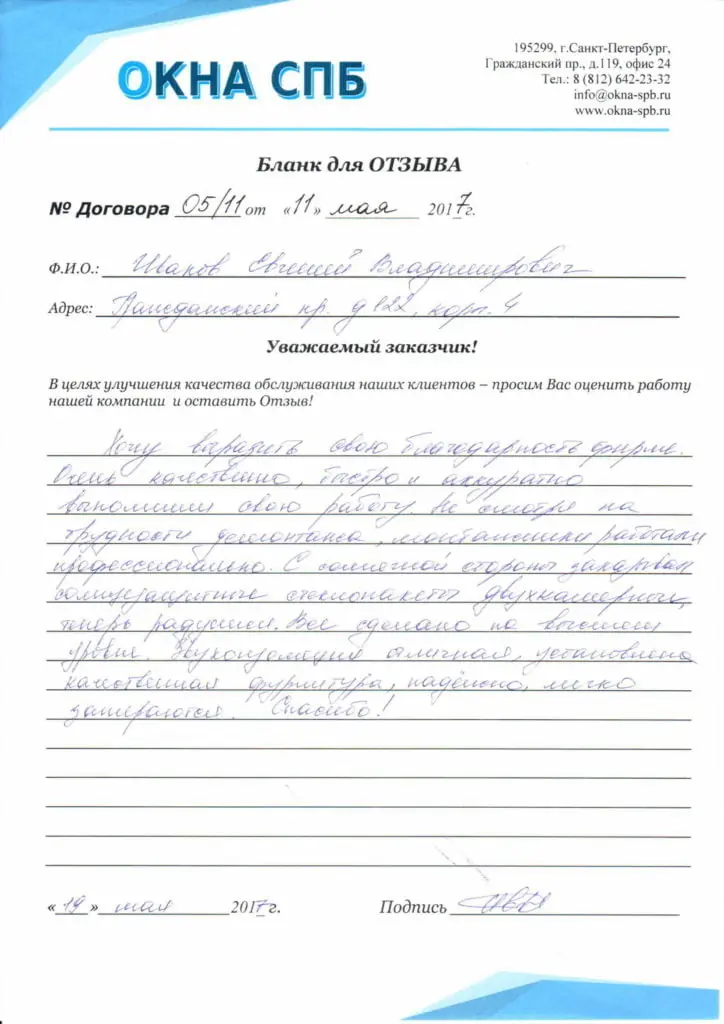 ОКНА СПБ
195299, г.Санкт-Петербург,
Гражданский пр., д.119, офис 24
Тел.: 8 (812) 642-23-32
info@okna-spb.ru
www.okna-spb.ru
Бланк для ОТЗЫВА
№ Договора 05/11 от «11» мая 2017г.
Ф.И.О.: Евгений Владимирович
Адрес: пр. д 122, корп. 4
Уважаемый заказчик!
В целях улучшения качества обслуживания наших клиентов – просим Вас оценить работу
нашей компании и оставить Отзыв!
Хочу выразить свою благодарность фирме.
Очень качествено, быстро и аккуратно
выполнили свою работу. Не смотря на
трудности демонтажа, монтажники работали
профессионально. С солнечной стороны заказывал
солнцезащитные стеклопакеты двухкамерные,
теперь радуемся. Все сделано на высшем
уровне. Звукоизоляция отличная, установлена
качественная фурнитура, надёжно, легко
запираются. Спасибо!
«19» мая 2017г.
Подпись